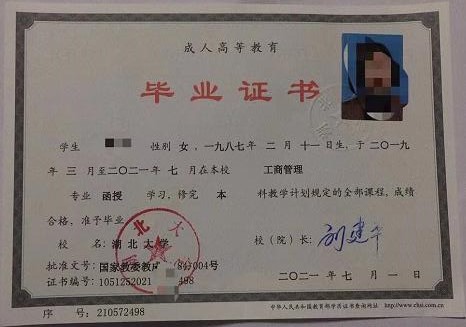 成人高等教育
毕业证书
学生 性别 女，一九八七年 二 月 十一 日生，于 二〇一九
年 三 月至二〇二一年 七 月在本校 工商管理
专业 函授 学习，修完 本 科教学计划规定的全部课程，成绩
合格，准予毕业
校 名：湖北大学 校（院）长：
批准文号：国家教委教 004号
证书编号：1051252021 498 二〇二一年 七 月 一 日
中华人民共和国教育部学历证书查询网址 http://www.chsi.com.cn
序 号：210572498